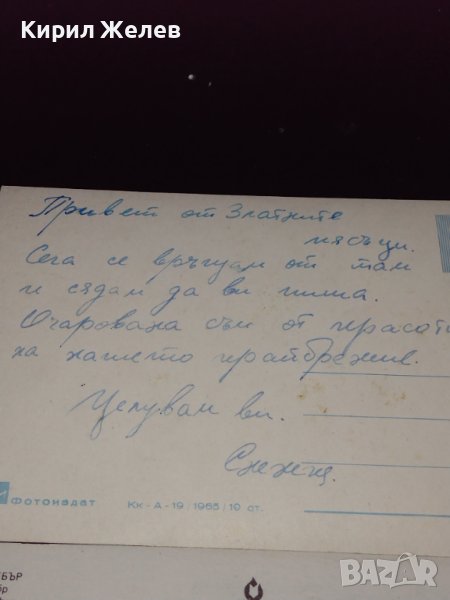 Кирил Желев
Привет от Златните
пясъци.
Сега се връщам от там
и сядам да ви пиша.
Очарована съм от красота
на нашето крайбрежие.
Целувам ви.
Фотоиздат КК-А-19/1965/10 ст.
БЪР
BAZAR
bg